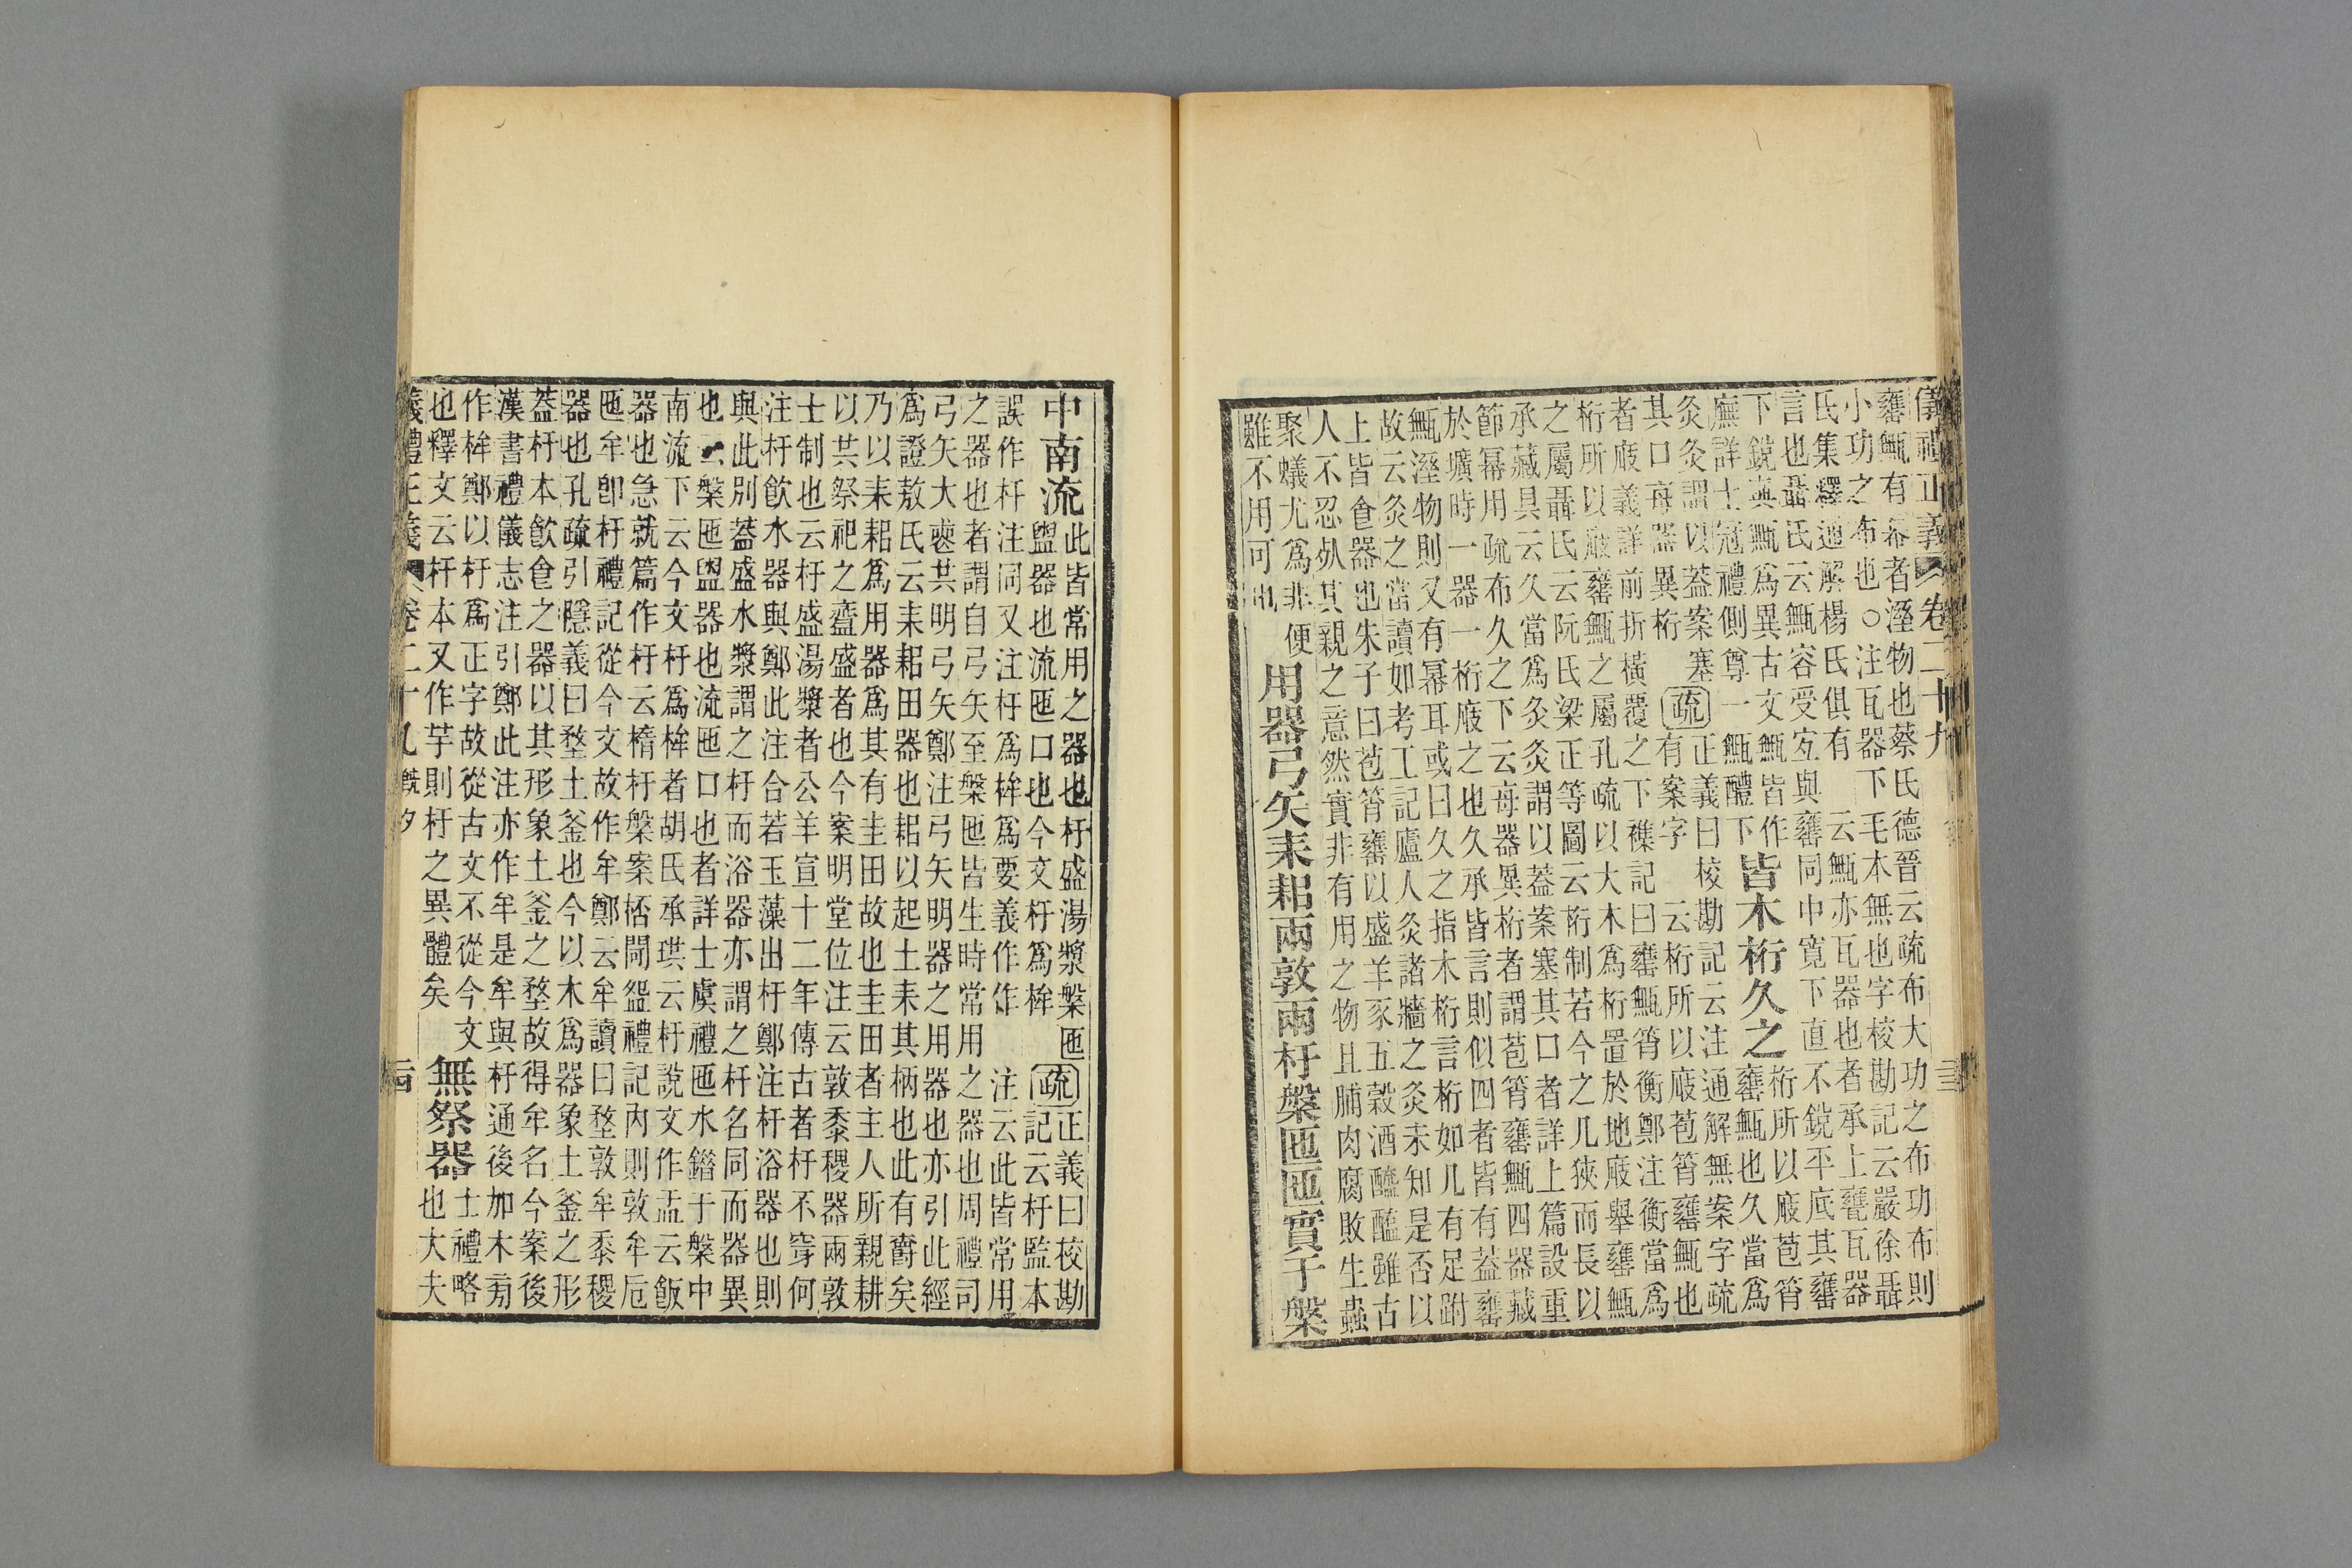 儀禮正義 卷二十九
罋甒有冪者溼物也蔡氏德晉云疏布大功之布功布則
小功之布也○注瓦器下毛本無也字校勘記云嚴徐聶
氏集釋通解楊氏俱有　云甒亦瓦器也者承上罋瓦器
言也聶氏云甒容受宐與罋同中寬下直不銳平底其罋
下銳與甒爲異古文甒皆作
廡詳士冠禮側尊一甒醴下
皆木桁久之
桁所以庪苞筲
罋甒也久當爲
灸灸謂以蓋案塞
其口每器異桁
疏
正義曰校勘記云注通解無案字疏
有案字　云桁所以庪苞筲罋甒也
者庪義詳前折橫覆之下襍記曰罋甒筲衡鄭注衡當爲
桁所以庪罋甒之屬孔疏以大木爲桁置於地庪舉罋甒
之屬聶氏云阮氏梁正等圖云桁制若今之几狹而長以
承藏具云久當爲灸灸謂以蓋案塞其口者詳上篇設重
節冪用疏布久之下云每器異桁者謂苞筲罋甒四器藏
於壙時一器一桁庪之也久承皆言則似四者皆有蓋罋
甒溼物則又有冪耳或曰久之指木桁言桁如几有足跗
故云灸之當讀如考工記廬人灸諸牆之灸未知是否以
上皆食器也朱子曰苞筲罋以盛羊豕五穀酒醴醢雖古
人不忍死其親之意然實非有用之物且脯肉腐敗生蟲
聚蟻尤爲非便
雖不用可也
用器弓矢耒耜兩敦兩杅槃匜匜實于槃
中南流
此皆常用之器也杅盛湯漿槃匜
盥器也流匜口也今文杅爲桙
疏
正義曰校勘
記云杅監本
誤作杆注同又注杅爲桙爲要義作作　注云此皆常用
之器也者謂自弓矢至槃匜皆生時常用之器也周禮司
弓矢大喪共明弓矢鄭注弓矢明器之用器也亦引此經
爲證敖氏云耒耜田器也耜以起土耒其柄也此有爵矣
乃以耒耜爲用器爲其有圭田故也圭田者主人所親耕
以共祭祀之齍盛者也今案明堂位注云敦黍稷器兩敦
士制也云杅盛湯漿者公羊宣十二年傳古者杅不穿何
注杅飲水器與鄭此注合若玉藻出杅鄭注杅浴器也則
與此別蓋盛水漿謂之杅而浴器亦謂之杅名同而器異
也云槃匜盥器也流匜口也者詳士虞禮匜水錯于槃中
南流下云今文杅爲桙者胡氏承珙云杅說文作盂云飯
器也急就篇作杅云橢杅槃案桮閜盌禮記內則敦牟卮
匜牟卽杅禮記從今文故作牟鄭云牟讀曰堥敦牟黍稷
器也孔疏引隱義曰堥土釜也今以木爲器象土釜之形
蓋杅本飲食之器以其形象土釜之堥故得牟名今案後
漢書禮儀志注引鄭此注亦作牟是牟與杅通後加木旁
作桙鄭以杅爲正字故從古文不從今文
也釋文云杅本又作芋則杅之異體矣
無祭器
士禮略
也大夫
儀禮正義 卷二十九 既夕